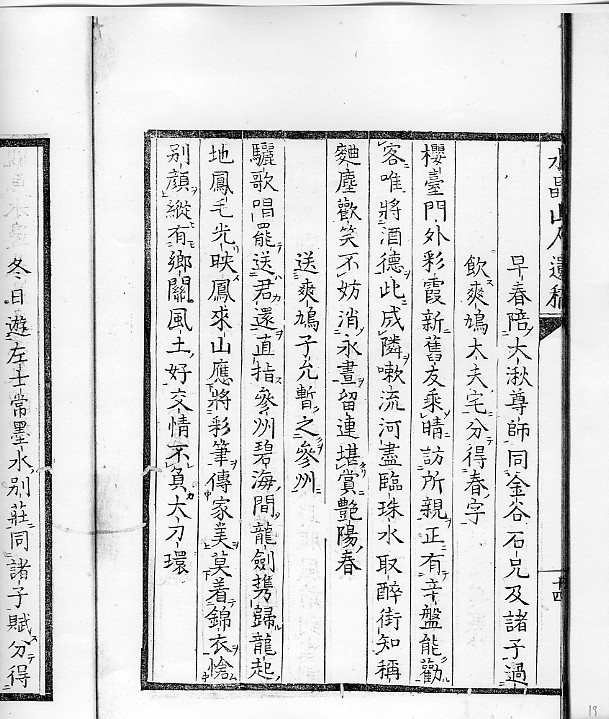 水晶山人遺稿
早春陪大湫尊師同金谷石兄及諸子過
飲爽鳩大夫宅分得春字
櫻臺門外彩霞新舊友乘晴訪所親正有辛盤能勸
客唯將酒德此成隣嗽流河盡臨珠水取醉街知稱
麯塵歡笑不妨消永晝留連堪賞艷陽春
送爽鳩子允暫之參州
驪歌唱罷送君還直指參州碧海間龍劍携歸龍起
地鳳毛光映鳳來山應將彩筆傳家美莫着錦衣愴
別顏縱有鄉關風土好交情不負大刀環
十四
冬日遊左士常墨水別莊同諸子賦分得
19